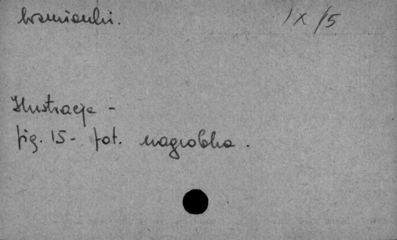 wzmianki. IX/5
Ilustracje -
fig. 15 - fot. nagrobka.